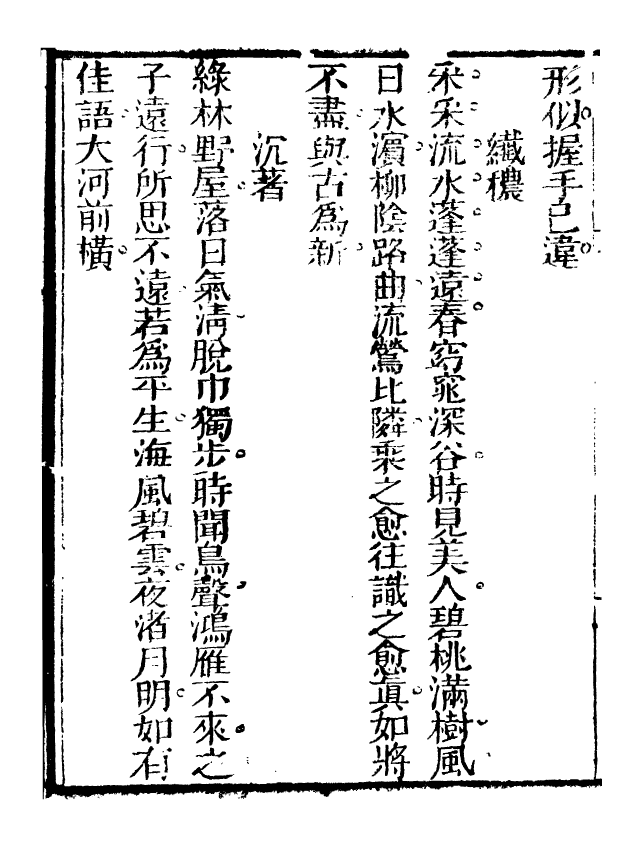 形似握手已違
纖穠
采采流水蓬蓬遠春窈窕深谷時見美人碧桃滿樹風
日水濵柳陰路曲流鶯比隣乘之愈往識之愈眞如將
不盡與古爲新
沉著
綠林野屋落日氣淸脫巾獨步時聞鳥聲鴻雁不來之
子遠行所思不遠若爲平生海風碧雲夜渚月明如有
佳語大河前橫